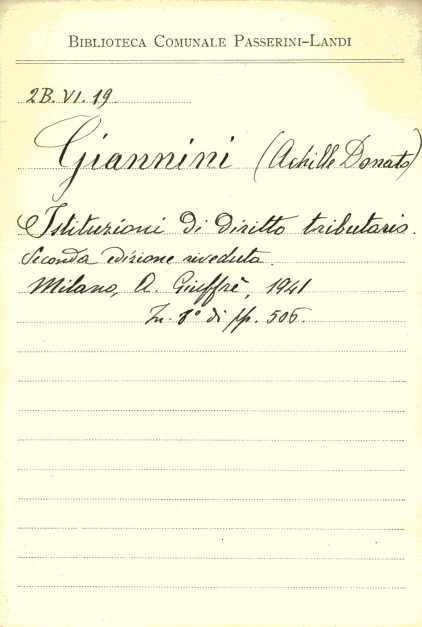 BIBLIOTECA COMUNALE PASSERINI-LANDI
2B. VI. 19.
Giannini (Achille Donato)
Istituzioni di diritto tributario.
Seconda edizione riveduta.
Milano, A. Giuffrè, 1941
In. 8° di pp. 506.